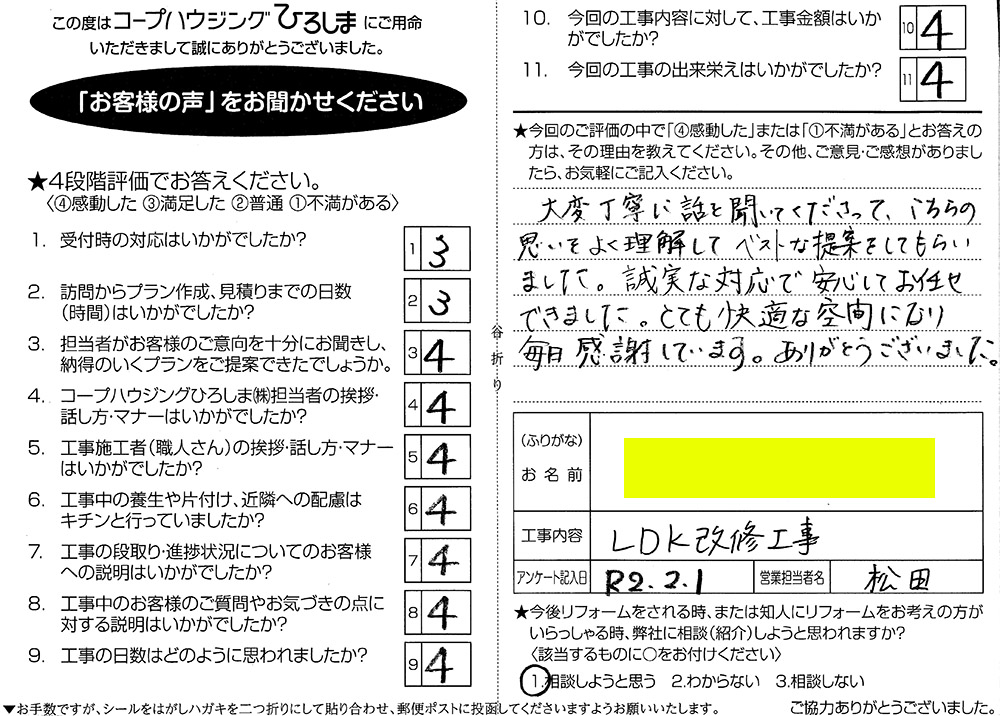 この度はコープハウジングひろしまにご用命
いただきまして誠にありがとうございました。
「お客様の声」をお聞かせください
★4段階評価でお答えください。
〈④感動した ③満足した ②普通 ①不満がある〉
1. 受付時の対応はいかがでしたか? 1 3
2. 訪問からプラン作成、見積りまでの日数
(時間)はいかがでしたか? 2 3
3. 担当者がお客様のご意向を十分にお聞きし、
納得のいくプランをご提案できたでしょうか。 3 4
4. コープハウジングひろしま㈱担当者の挨拶・
話し方・マナーはいかがでしたか? 4 4
5. 工事施工者(職人さん)の挨拶・話し方・マナー
はいかがでしたか? 5 4
6. 工事中の養生や片付け、近隣への配慮は
キチンと行っていましたか? 6 4
7. 工事の段取り・進捗状況についてのお客様
への説明はいかがでしたか? 7 4
8. 工事中のお客様のご質問やお気づきの点に
対する説明はいかがでしたか? 8 4
9. 工事の日数はどのように思われましたか? 9 4
谷折り
10. 今回の工事内容に対して、工事金額はいか
がでしたか? 10 4
11. 今回の工事の出来栄えはいかがでしたか? 11 4
★今回のご評価の中で「④感動した」または「①不満がある」とお答えの
方は、その理由を教えてください。その他、ご意見・ご感想がありまし
たら、お気軽にご記入ください。
大変丁寧に話を聞いてくださって、こちらの
思いをよく理解してベストな提案をしてもらい
ました。誠実な対応で安心してお任せ
できました。とても快適な空間になり
毎日感謝しています。ありがとうございました。
(ふりがな)
お名前
工事内容 LDK改修工事
アンケート記入日 R2.2.1 営業担当者名 松田
★今後リフォームをされる時、または知人にリフォームをお考えの方が
いらっしゃる時、弊社に相談(紹介)しようと思われますか?
〈該当するものに○をお付けください〉
1.相談しようと思う 2.わからない 3.相談しない
▼お手数ですが、シールをはがしハガキを二つ折りにして貼り合わせ、郵便ポストに投函してくださいますようお願いいたします。
ご協力ありがとうございました。